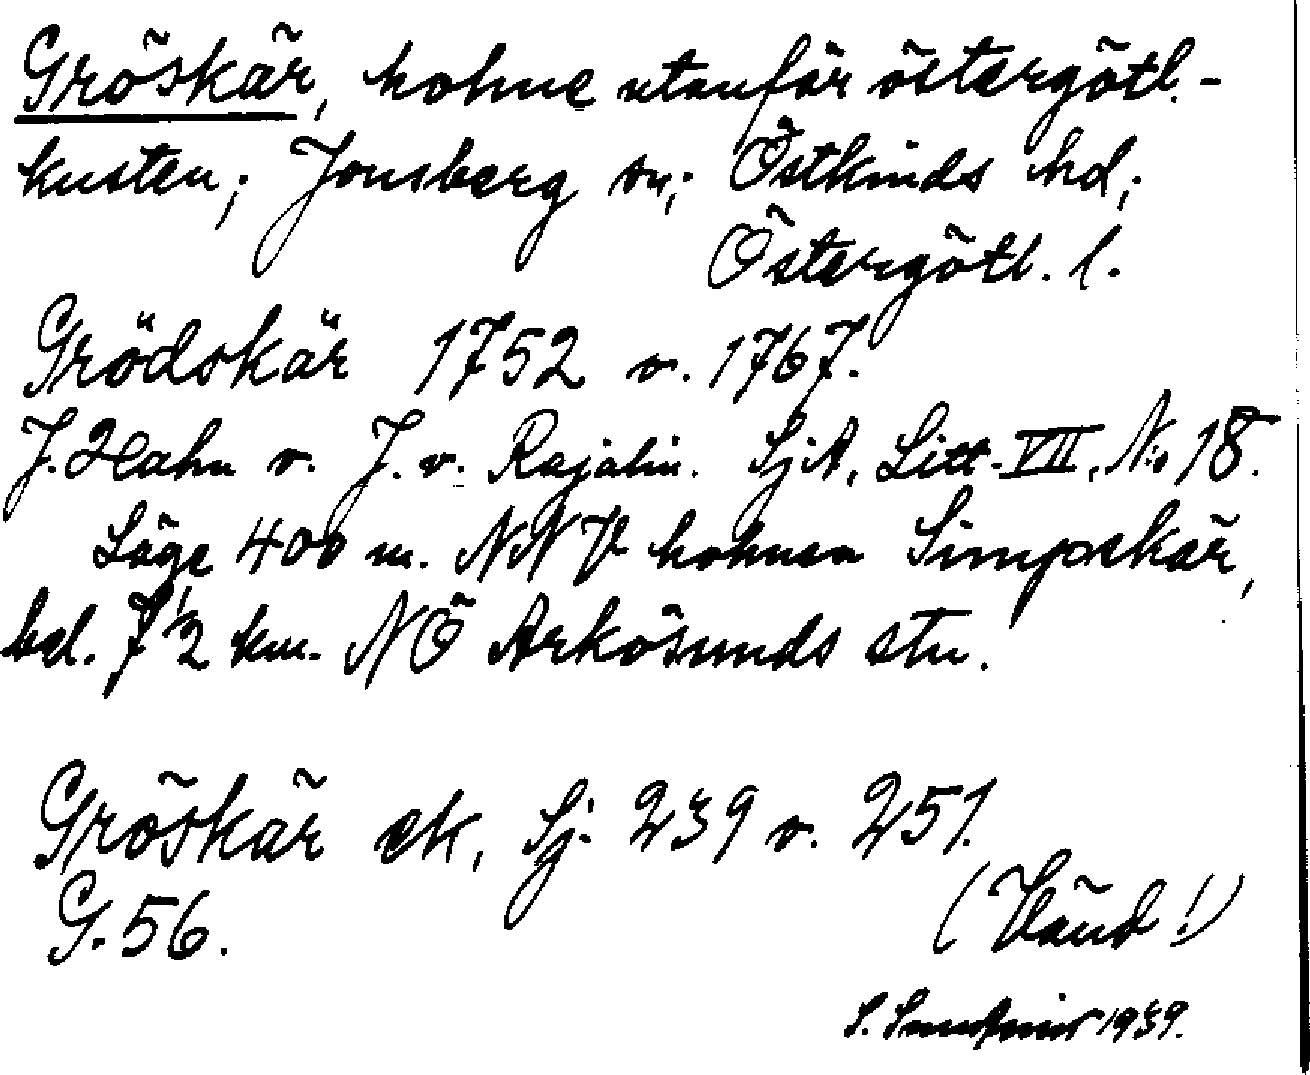 Gröskär, holme utanför östergötl.-
kusten; Jonsberg sn; Östkinds hd;
Östergötl. l.
Grödskär 1752 o. 1767.
J. Hahn o. J. v. Rajalin. SjA, Litt. VII, No 18.
Läge 400 m. NNV holmen Simpskär,
bel. 7 1/2 km. NÖ Arkösunds stn.
Gröskär ek, Sj. 239 o. 251.
G. 56.
(Vänd!)
S. 1939.